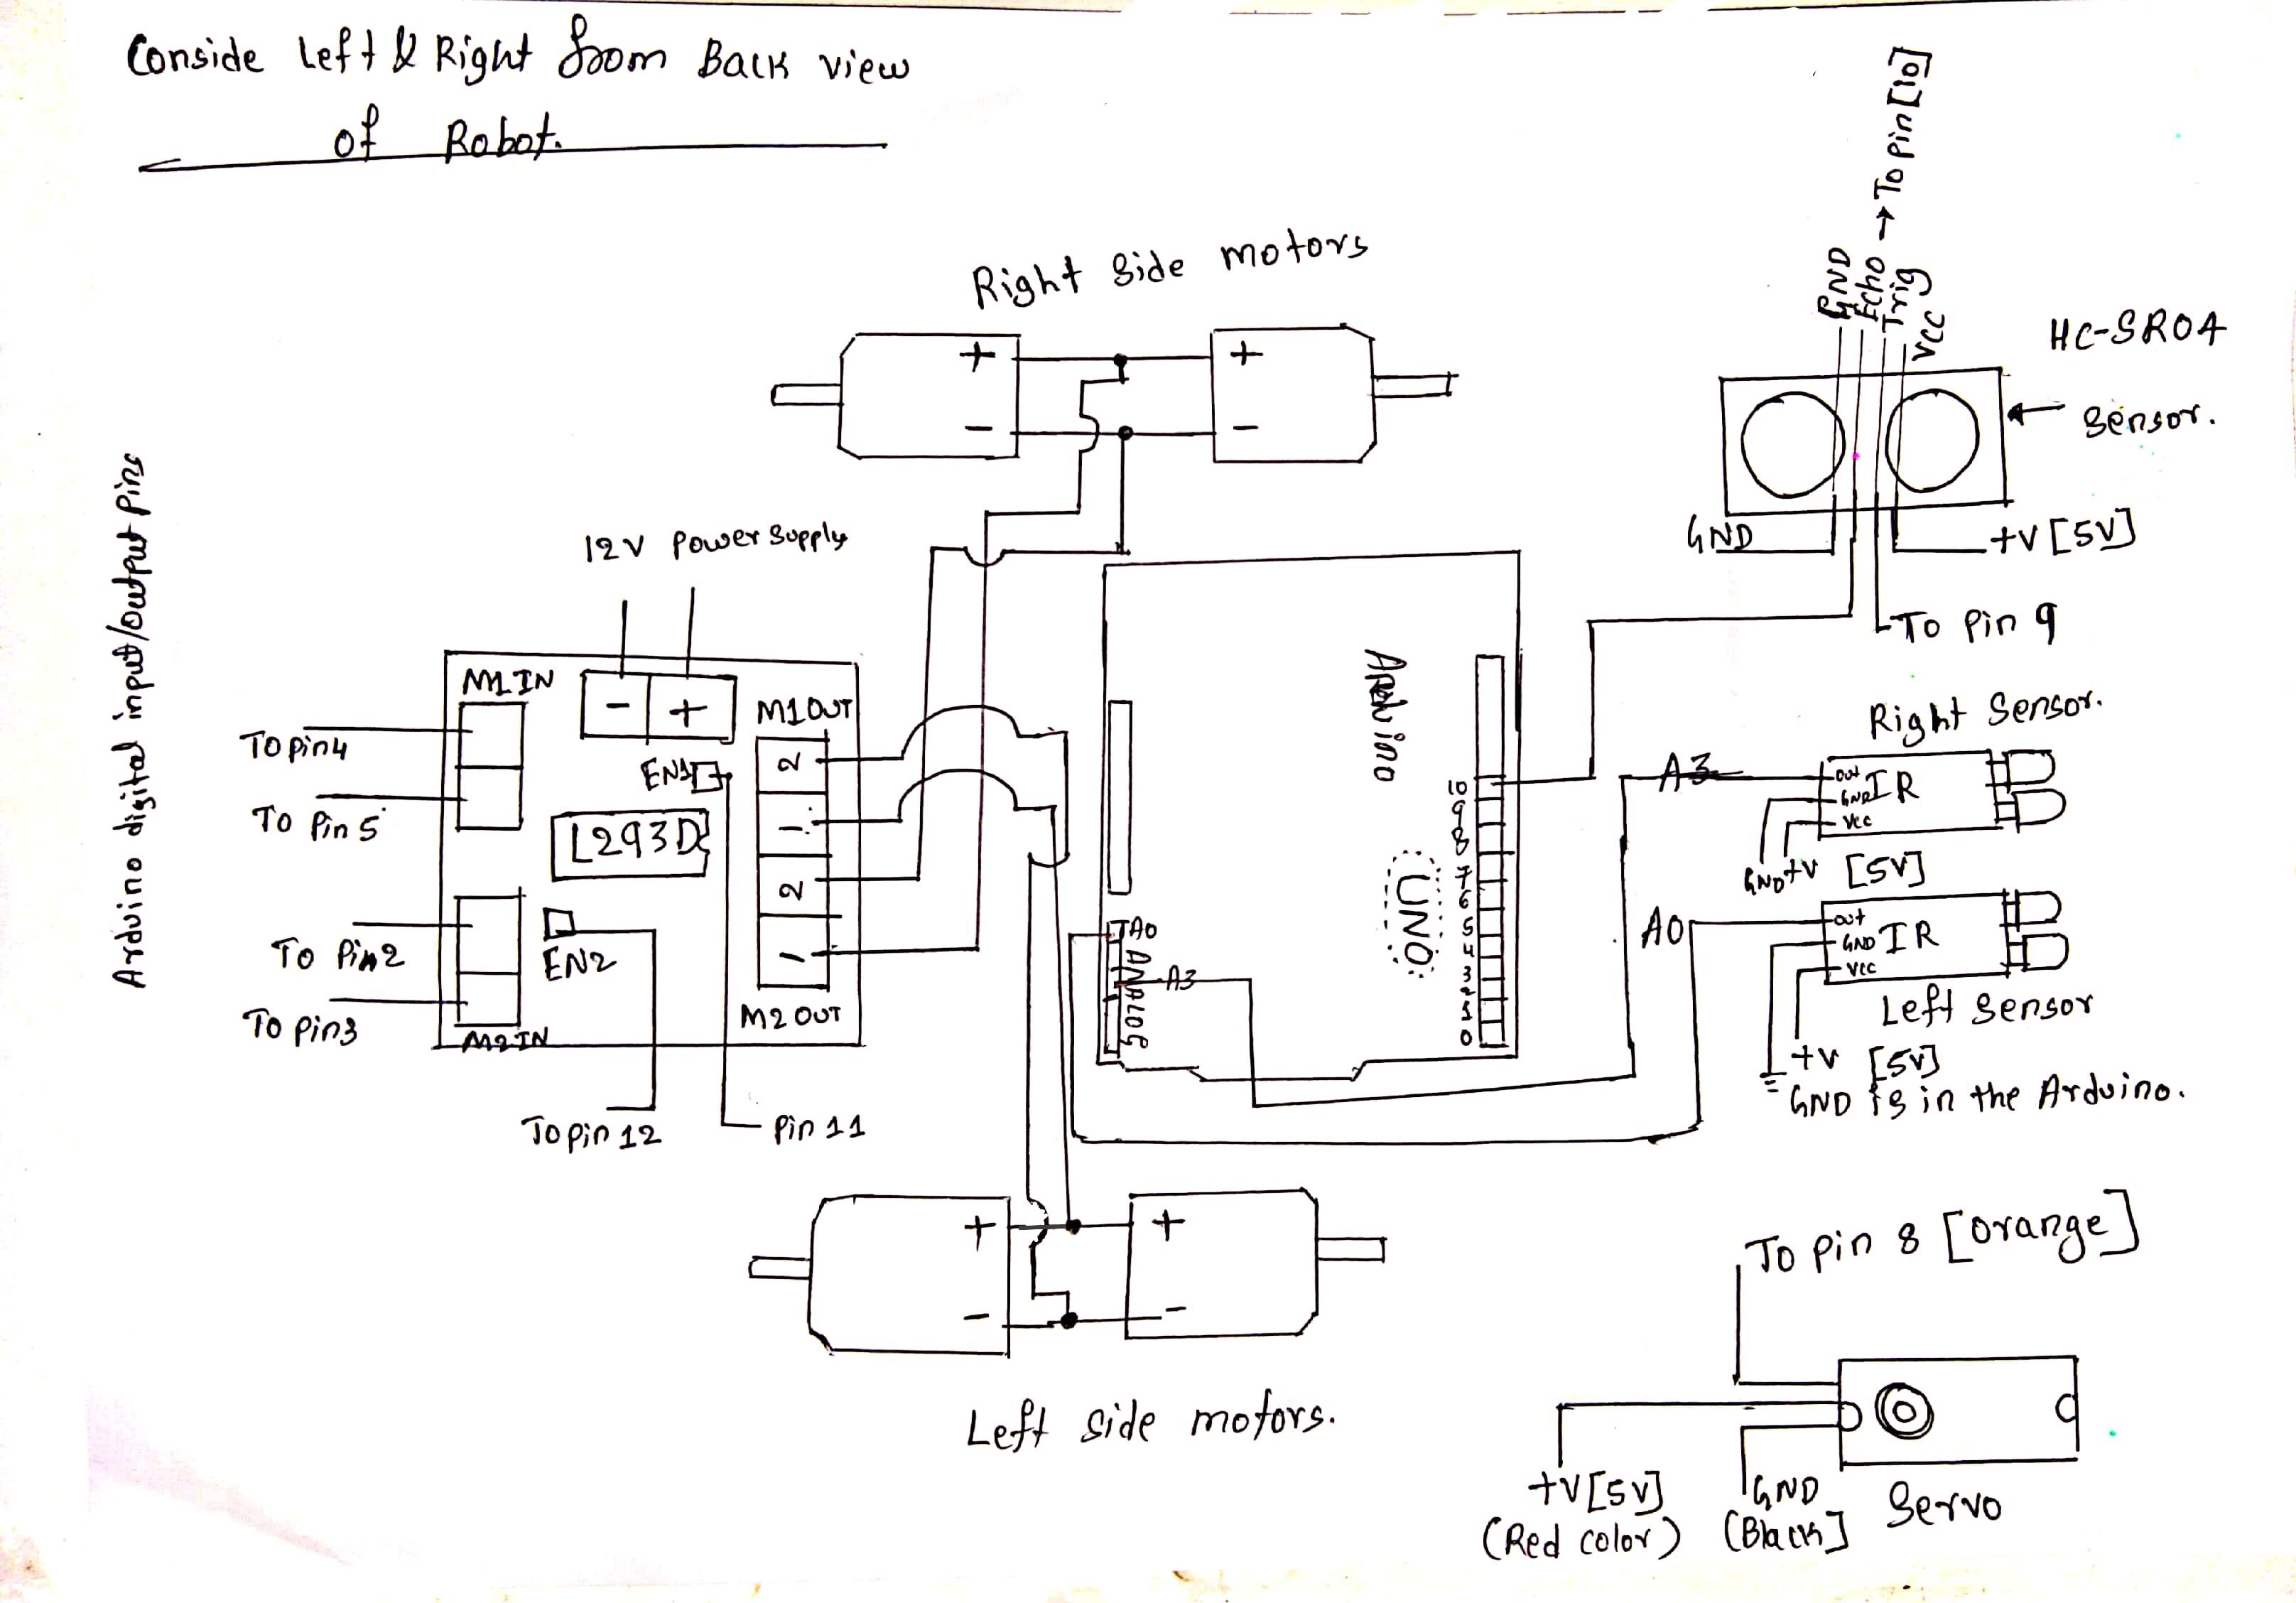 Conside Left & Right from Back view
of Robot.
Right Side motors
+
+
-
-
12V Power Supply
Arduino digital input/output pins
M1 IN
-
+
M1 OUT
2
1
2
1
M2 OUT
EN1
L293D
EN2
M2 IN
To pin4
To Pin 5
To Pin2
To Pin3
To pin 12
Pin 11
Arduino
UNO
10
9
8
7
6
5
4
3
2
1
0
A0
ANALOG
A3
GND
Echo → To pin [10]
Trig
VCC
HC-SR04
Sensor.
GND
+V [5V]
To Pin 9
Right Sensor.
A3
out
GND
Vcc
IR
GND
+V [5V]
A0
out
GND
Vcc
IR
Left Sensor
+V [5V]
GND is in the Arduino.
+
+
-
-
Left Side motors.
To pin 8 [orange]
+V [5V]
(Red color)
GND
(Black]
Servo